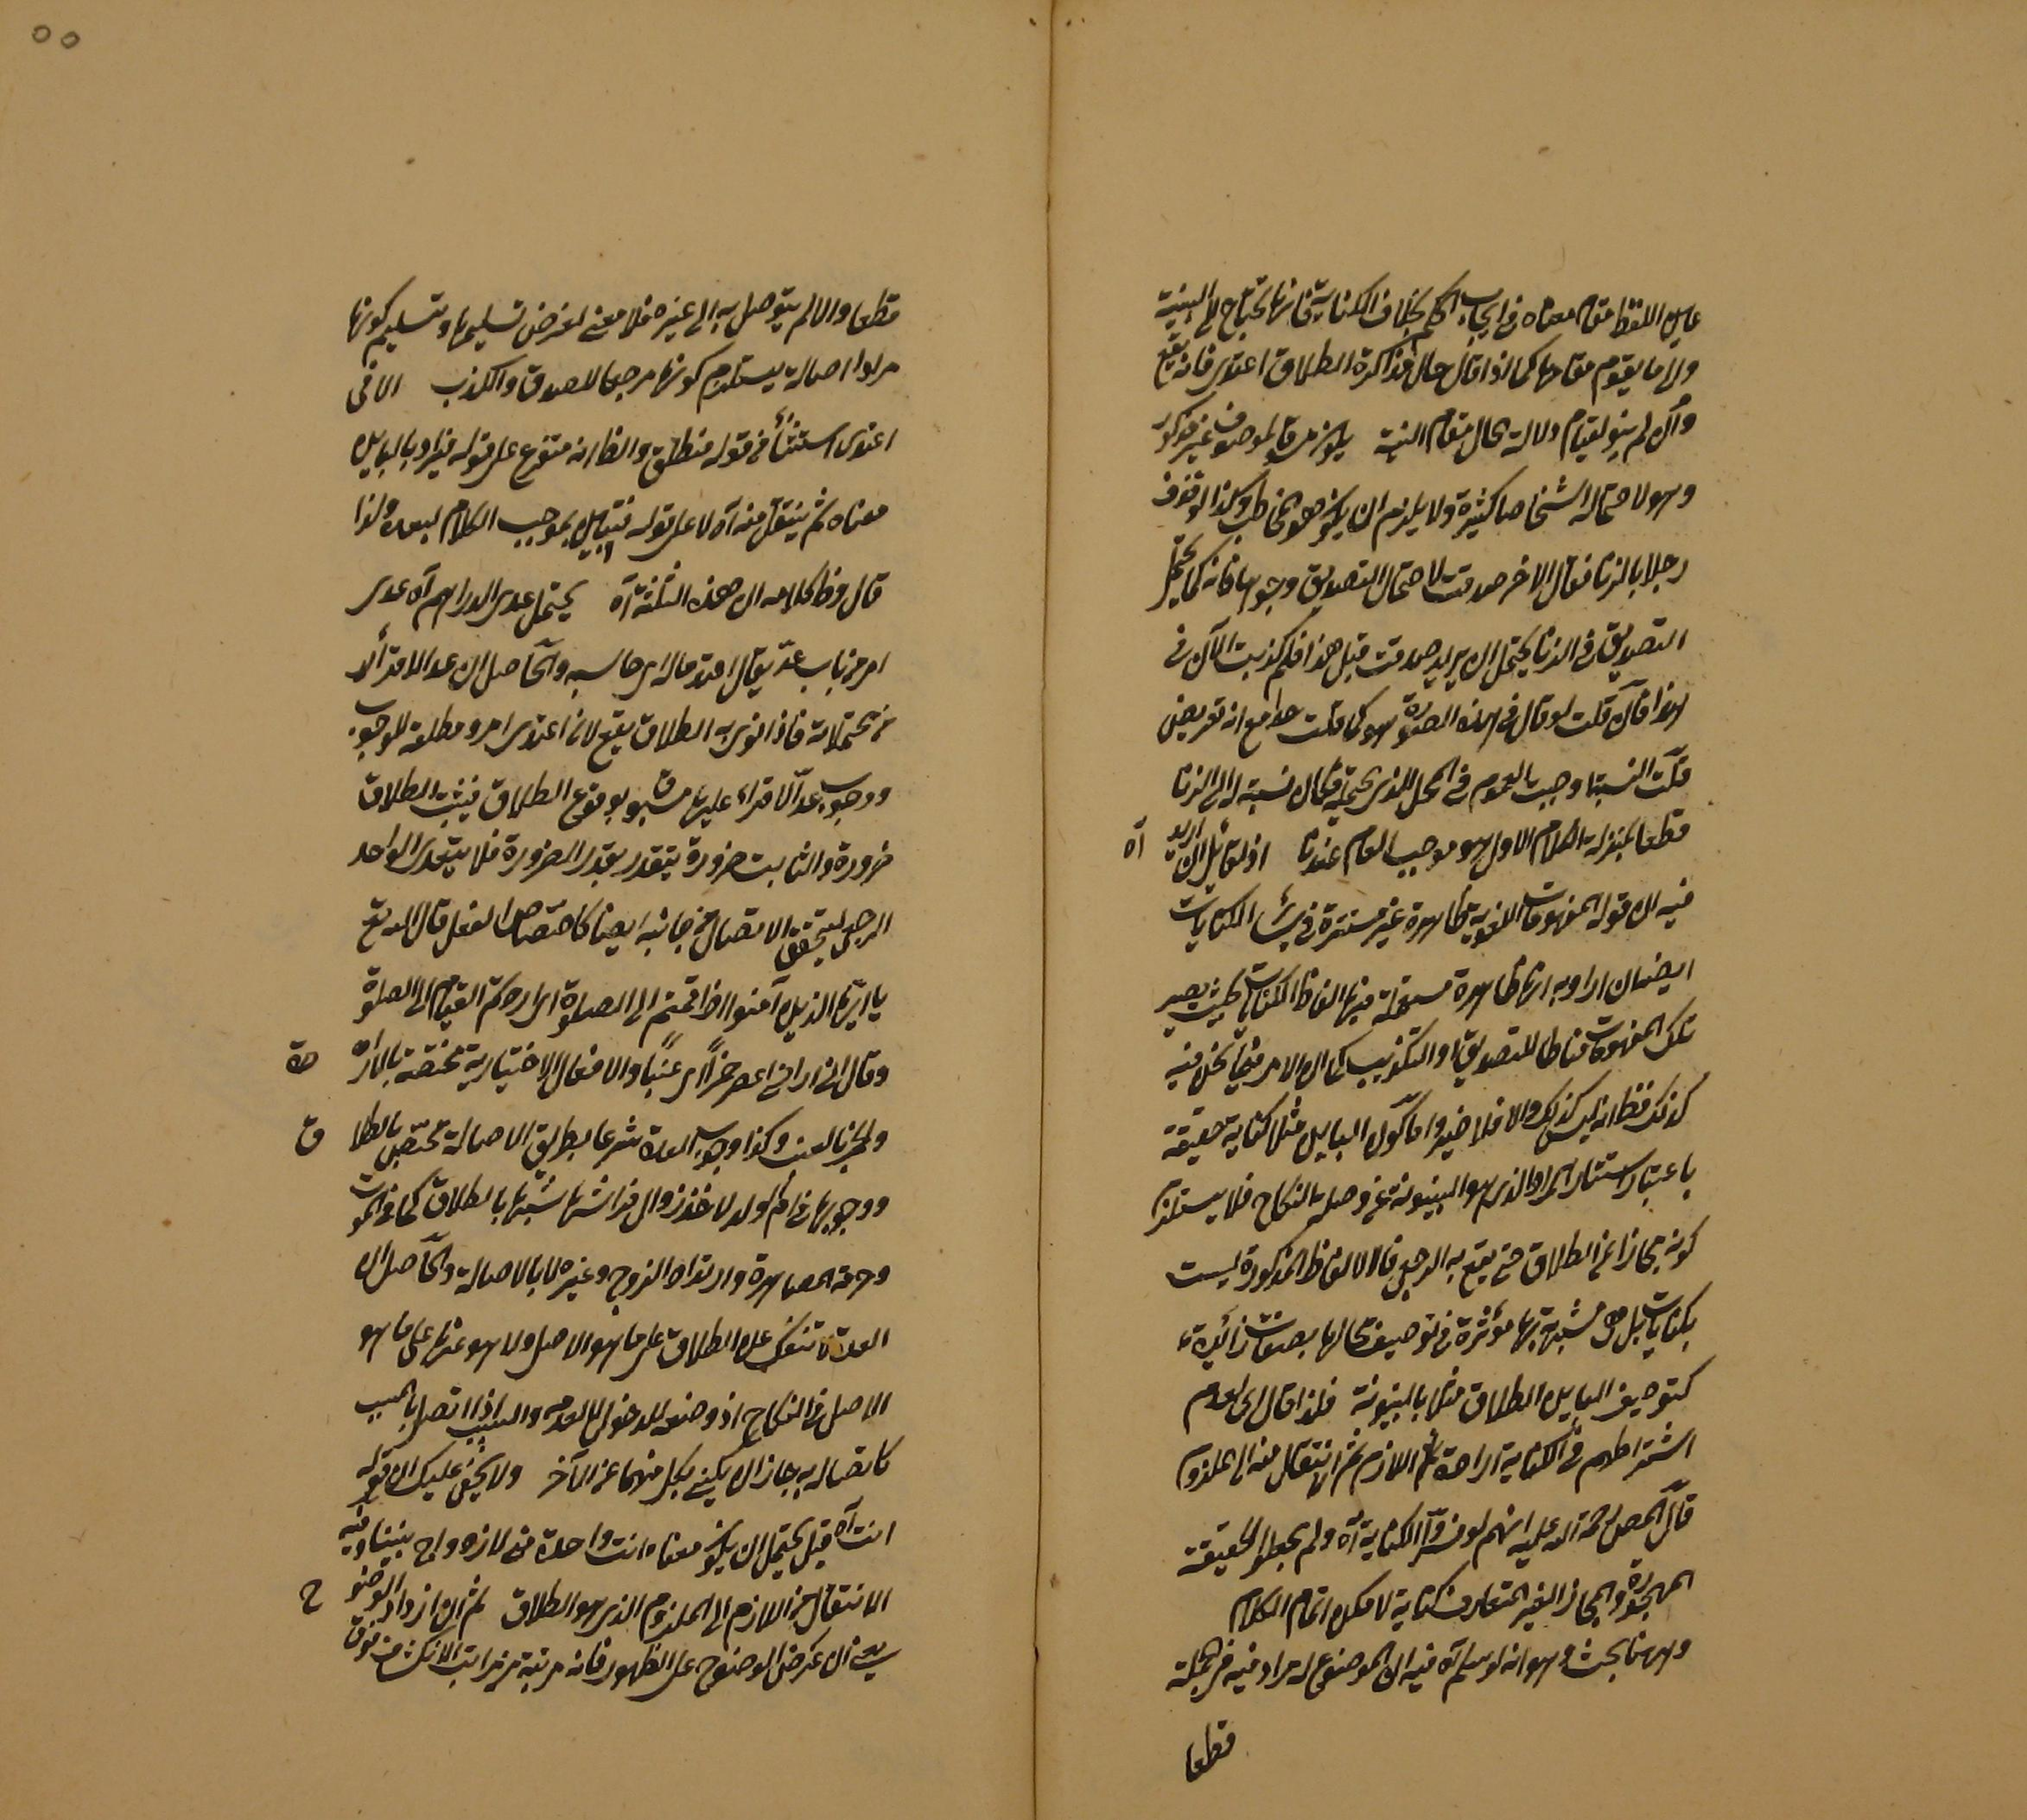 عين اللفظ مقام معناه في ايجاب الحكم بخلاف الكناية فانها تحتاج الى النية
والى ما يقوم مقامها كما اذا قال حال مذاكرة الطلاق اعتدى فانه يقع
وان لم ينو لقيام دلالة الحال مقام النية يكون من قبل لموصوف غير مذكور
وهو لاحتماله اشخاصا كثيرة ولا يلزم ان يكون هو المخاطب وكذا لو قذف
رجلا بالزنا فقال الاخر صدقت لاحتمال التصديق وجوها فانه كما يحتمل
التصديق في الزنا يحتمل ان يريد صدقت قبل هذا فلم كذبت الآن في
هذا فان قلت لو قال في هذه الصورة هو كما قلت حد مع انه تعريض
قلت النسبة اوجبت العموم في المحل الذى يحتمله فكان نسبة له الى الزنا
قطعا بمنزلة الكلام الاول هو موجب العام عندنا اذ لقائل ان اريد آه
فيه ان قوله المفهومات اللغوية ظاهرة غير مستترة في سائر الكنايات
ايضا ان اراد به انها ظاهرة مستعملة فيها الفاظ الكنايات بحيث يصير
تلك المفهومات مناطا للتصديق او التكذيب كما ان الامر فيما نحن فيه
كذلك فظ انه ليس كذلك والا فلا ضير واما كون البائن مثلا كناية حقيقة
باعتبار استتار المراد الذى هو البينونة عن وصلة النكاح فلا يستلزم
كونه مجازا عن الطلاق حتى يقع به الرجعى فالالفاظ المذكورة ليست
بكنايات بل هى مشبهة بها مؤثرة في توصيف محالها بصفات زائدة
كتوصيف البائن الطلاق مثلا بالبينونة فلذا قال اى لعدم
اشتراطهم في الكناية ارادة اللازم ثم الانتقال منه الى الملزوم
قال المص رحمة الله عليه انهم لو فسروا الكناية آه ولم يجعلوا الحقيقة
المهجورة والمجاز الغير المتعارف كناية لامكن اتمام الكلام
وههنا بحث وهو انه لو سلم آه فيه ان الموضوع له مراد فيه في الجملة
قطعا
قطعا والا لم يتوصل به الى غيره فلا معنى لفرض تسليمها وتسليم كونها
مرادا اصالة يستلزم كونها مرجعا للصدق والكذب الا في
اعتدى استثناء في قوله فتطلق والظ انه متفرع على قوله فيراد بالبائن
معناه ثم ينتقل منه آه لا على قوله فتبين بموجب الكلام لبعده ولذا
قال وظ كلامه ان هذه الثلثة آه يحتمل عدى الدراهم آه عدى
امر من باب عد يقال اعتد ماله اى حاسبه والحاصل ان عد الاقراء
من محتملاته فاذا نوى به الطلاق يقع لان اعتدى امر ومطلقه للوجوب
ووجوب عد الاقراء عليها مسبوق بوقوع الطلاق فيثبت الطلاق
ضرورة والثابت ضرورة يتقدر بقدر الضرورة فلا يتعدى الواحد
الرجعى ليتحقق الاتصال من جانبه ايضا كاختصاص الفعل قال الله تع
يا ايها الذين آمنوا اذا قمتم الى الصلوة اى اردتم القيام الى الصلوة
وقال انى ارانى اعصر خمرا اى عنبا والافعال الاختيارية مختصة بالارادة
والخمر بالعنب وكذا وجوب العدة شرعا بطريق الاصالة تختص بالطلاق
ووجوبها في ام الولد لاخذ زوال فراشها شبها بالطلاق كما في الموت
وحرمة المصاهرة وارتداد الزوج وغيره لا بالاصالة والحاصل ان
العدة لا تنفك عن الطلاق على ما هو الاصل ولا هو عنها على ما هو
الاصل في النكاح اذ وضعه للدخول لا لعدمه والسبب اذا اتصل بالمسبب
كاتصاله به جاز ان يكنى بكل منهما عن الآخر ولا يخفى عليك ان قوله
انت آه قيل يحتمل ان يكون معناه انت واحدة في الازدواج بيننا وفيه
الانتقال من اللازم الى الملزوم الذى هو الطلاق ثم ان ازداد الوضوح
يعنى ان عرض الوضوح على الظهور فانه مرتبة من مراتب الانكشاف فوق